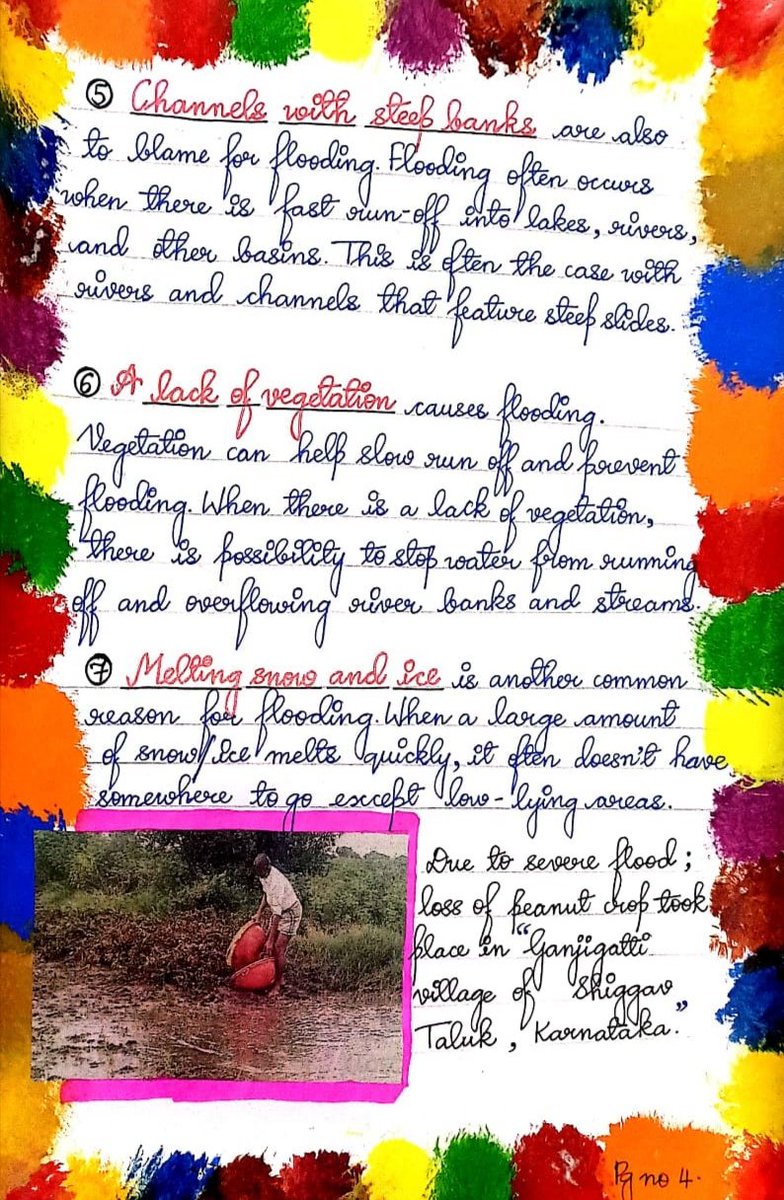 ⑤ Channels with steep banks are also
to blame for flooding. Flooding often occurs
when there is fast run-off into lakes, rivers,
and other basins. This is often the case with
rivers and channels that feature steep slides.
⑥ A lack of vegetation causes flooding.
Vegetation can help slow run off and prevent
flooding. When there is a lack of vegetation,
there is possibility to stop water from running
off and overflowing river banks and streams.
⑦ Melting snow and ice is another common
reason for flooding. When a large amount
of snow/ice melts quickly, it often doesn't have
somewhere to go except low-lying areas.
Due to severe flood;
loss of peanut crop took
place in "Ganjigatti
village of Shiggav
Taluk, Karnataka."
Pg no 4.